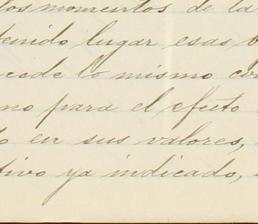 los momentos de la
tenido lugar esas
cede lo mismo con
no para el efecto
o en sus valores,
tivo ya indicado,